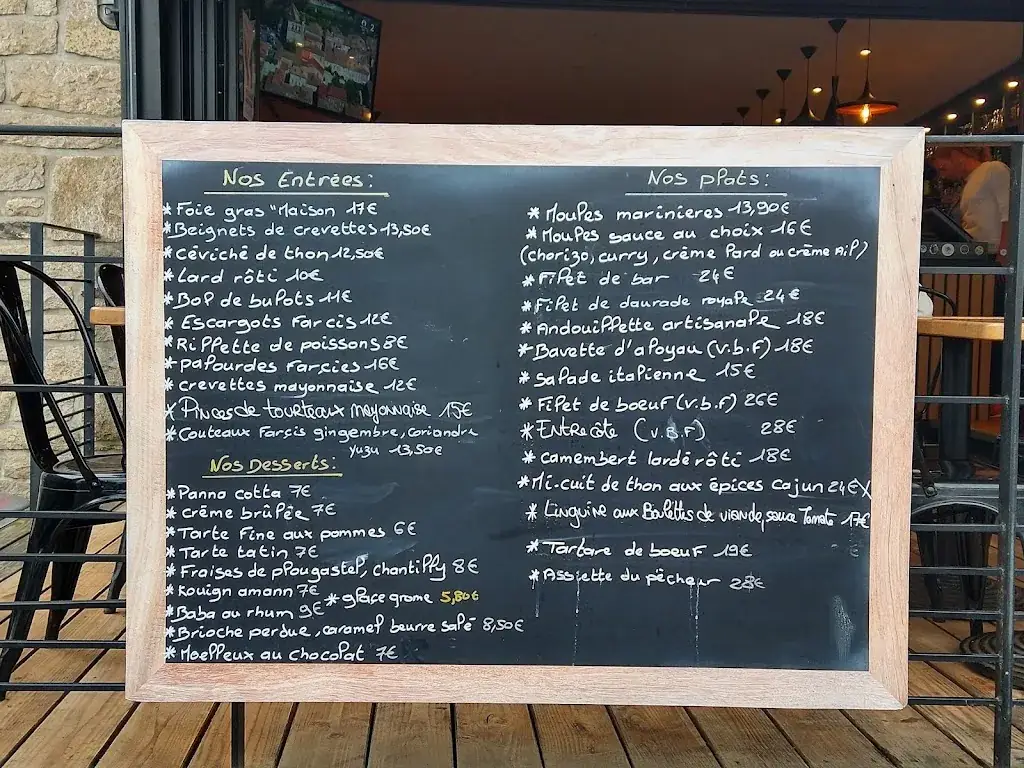 Nos Entrées:
* Foie gras "Maison 17€
* Beignets de crevettes 13,50€
* Céviché de thon 12,50€
* Lard rôti 10€
* Bol de bulots 11€
* Escargots Farcis 12€
* Rillette de poissons 8€
* palourdes Farcies 16€
* crevettes mayonnaise 12€
* Pinces de tourteaux mayonnaise 15€
* Couteaux Farcis gingembre, coriandre
yuzu 13,50€
Nos Desserts:
* Panna cotta 7€
* crème brûlée 7€
* Tarte Fine aux pommes 6€
* Tarte tatin 7€
* Fraises de plougastel, chantilly 8€
* Kouign amann 7€ * glace grome 5,80€
* Baba au rhum 9€
* Brioche perdue, caramel beurre salé 8,50€
* Moelleux au chocolat 7€
Nos plats:
* Moules marinieres 13,90€
* Moules sauce au choix 16€
(chorizo, curry, crème lard ou crème Ail)
* Filet de bar 24€
* Filet de daurade royale 24€
* Andouillette artisanale 18€
* Bavette d'aloyau (v.b.F) 18€
* salade italienne 15€
* Filet de boeuf (v.b.f) 26€
* Entrecôte (V.B.F) 28€
* camembert lardé rôti 18€
* Mi-cuit de thon aux épices cajun 24€ X
* Linguine aux Boulettes de viande, sauce Tomate 17€
* Tartare de boeuf 19€
* Assiette du pêcheur 28€